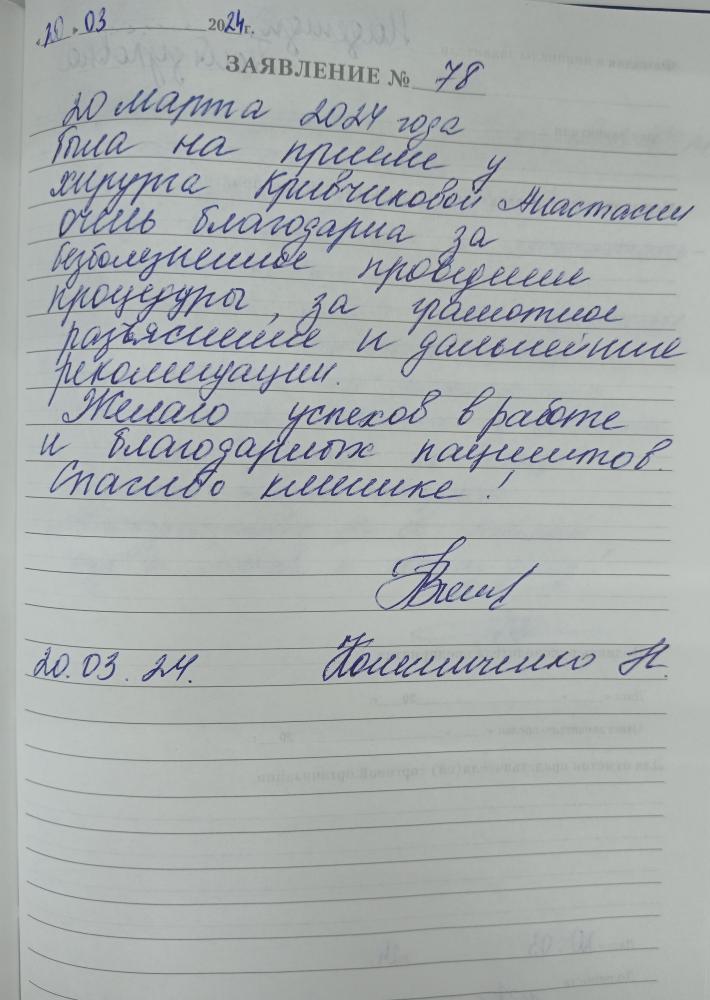 « 20 » 03 2024 г.
ЗАЯВЛЕНИЕ № 78
20 марта 2024 года
была на приеме у
хирурга Кривчиковой Анастасии
очень благодарна за
безболезненное проведение
процедуры, за грамотное
разъяснение и дальнейшие
рекомендации.
Желаю успехов в работе
и благодарных пациентов.
Спасибо клинике!
20.03.24. Н.